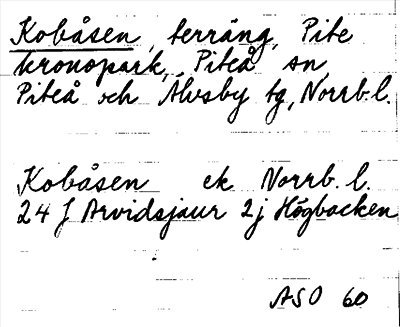 Kobåsen, terräng, Pite
kronopark, Piteå sn
Piteå och Älvsby tg, Norrb.l.
Kobåsen ek Norrb. l.
24 J Arvidsjaur 2j Högbacken
ASO 60